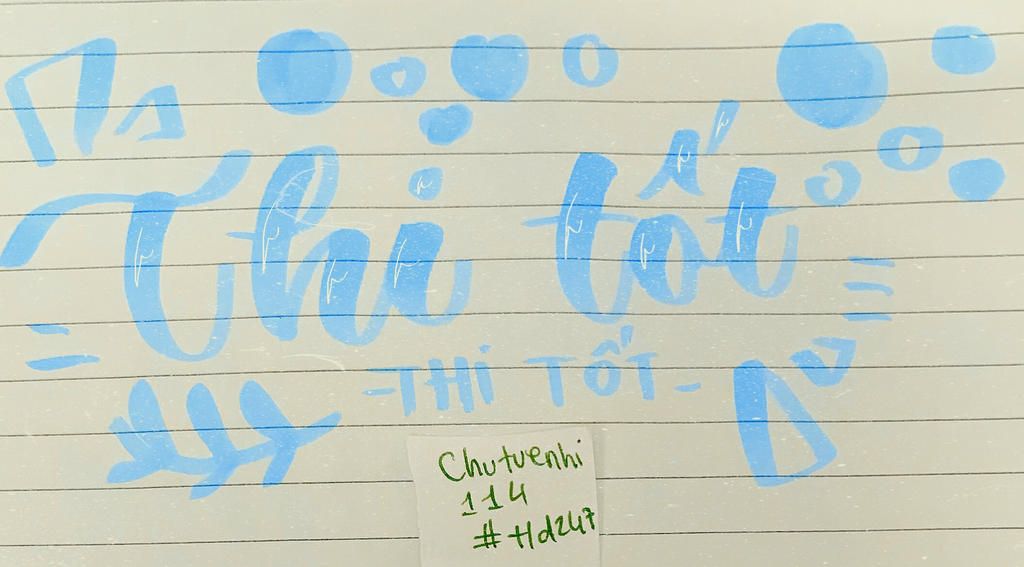 Thi tốt
-THI TỐT-
Chutuenhi
114
#Hd247